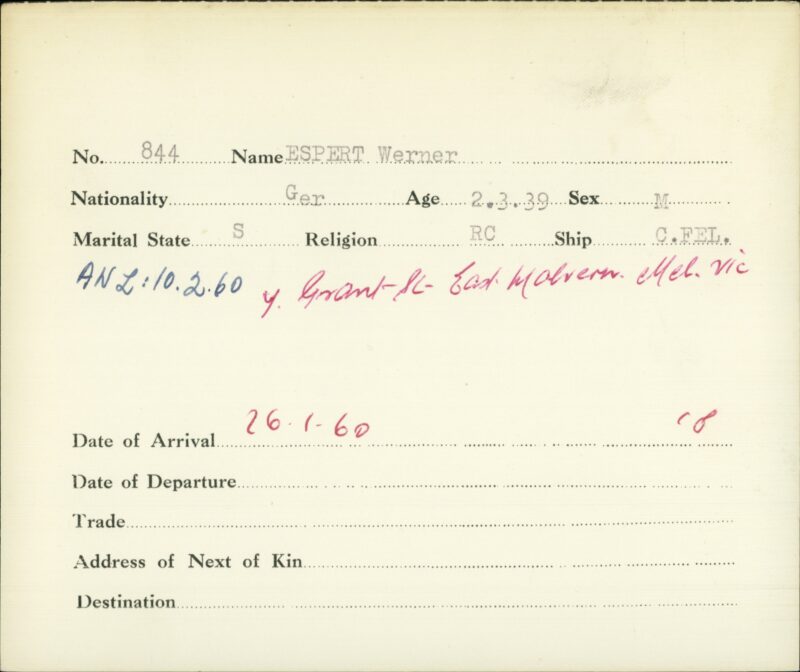 No. 844 Name ESPERT Werner
Nationality Ger Age 2.3.39 Sex M
Marital State S Religion RC Ship C.FEL.
ANL: 10.2.60 y. Grant St East Malvern. Mel. Vic
Date of Arrival 26.1.60 18
Date of Departure
Trade
Address of Next of Kin
Destination